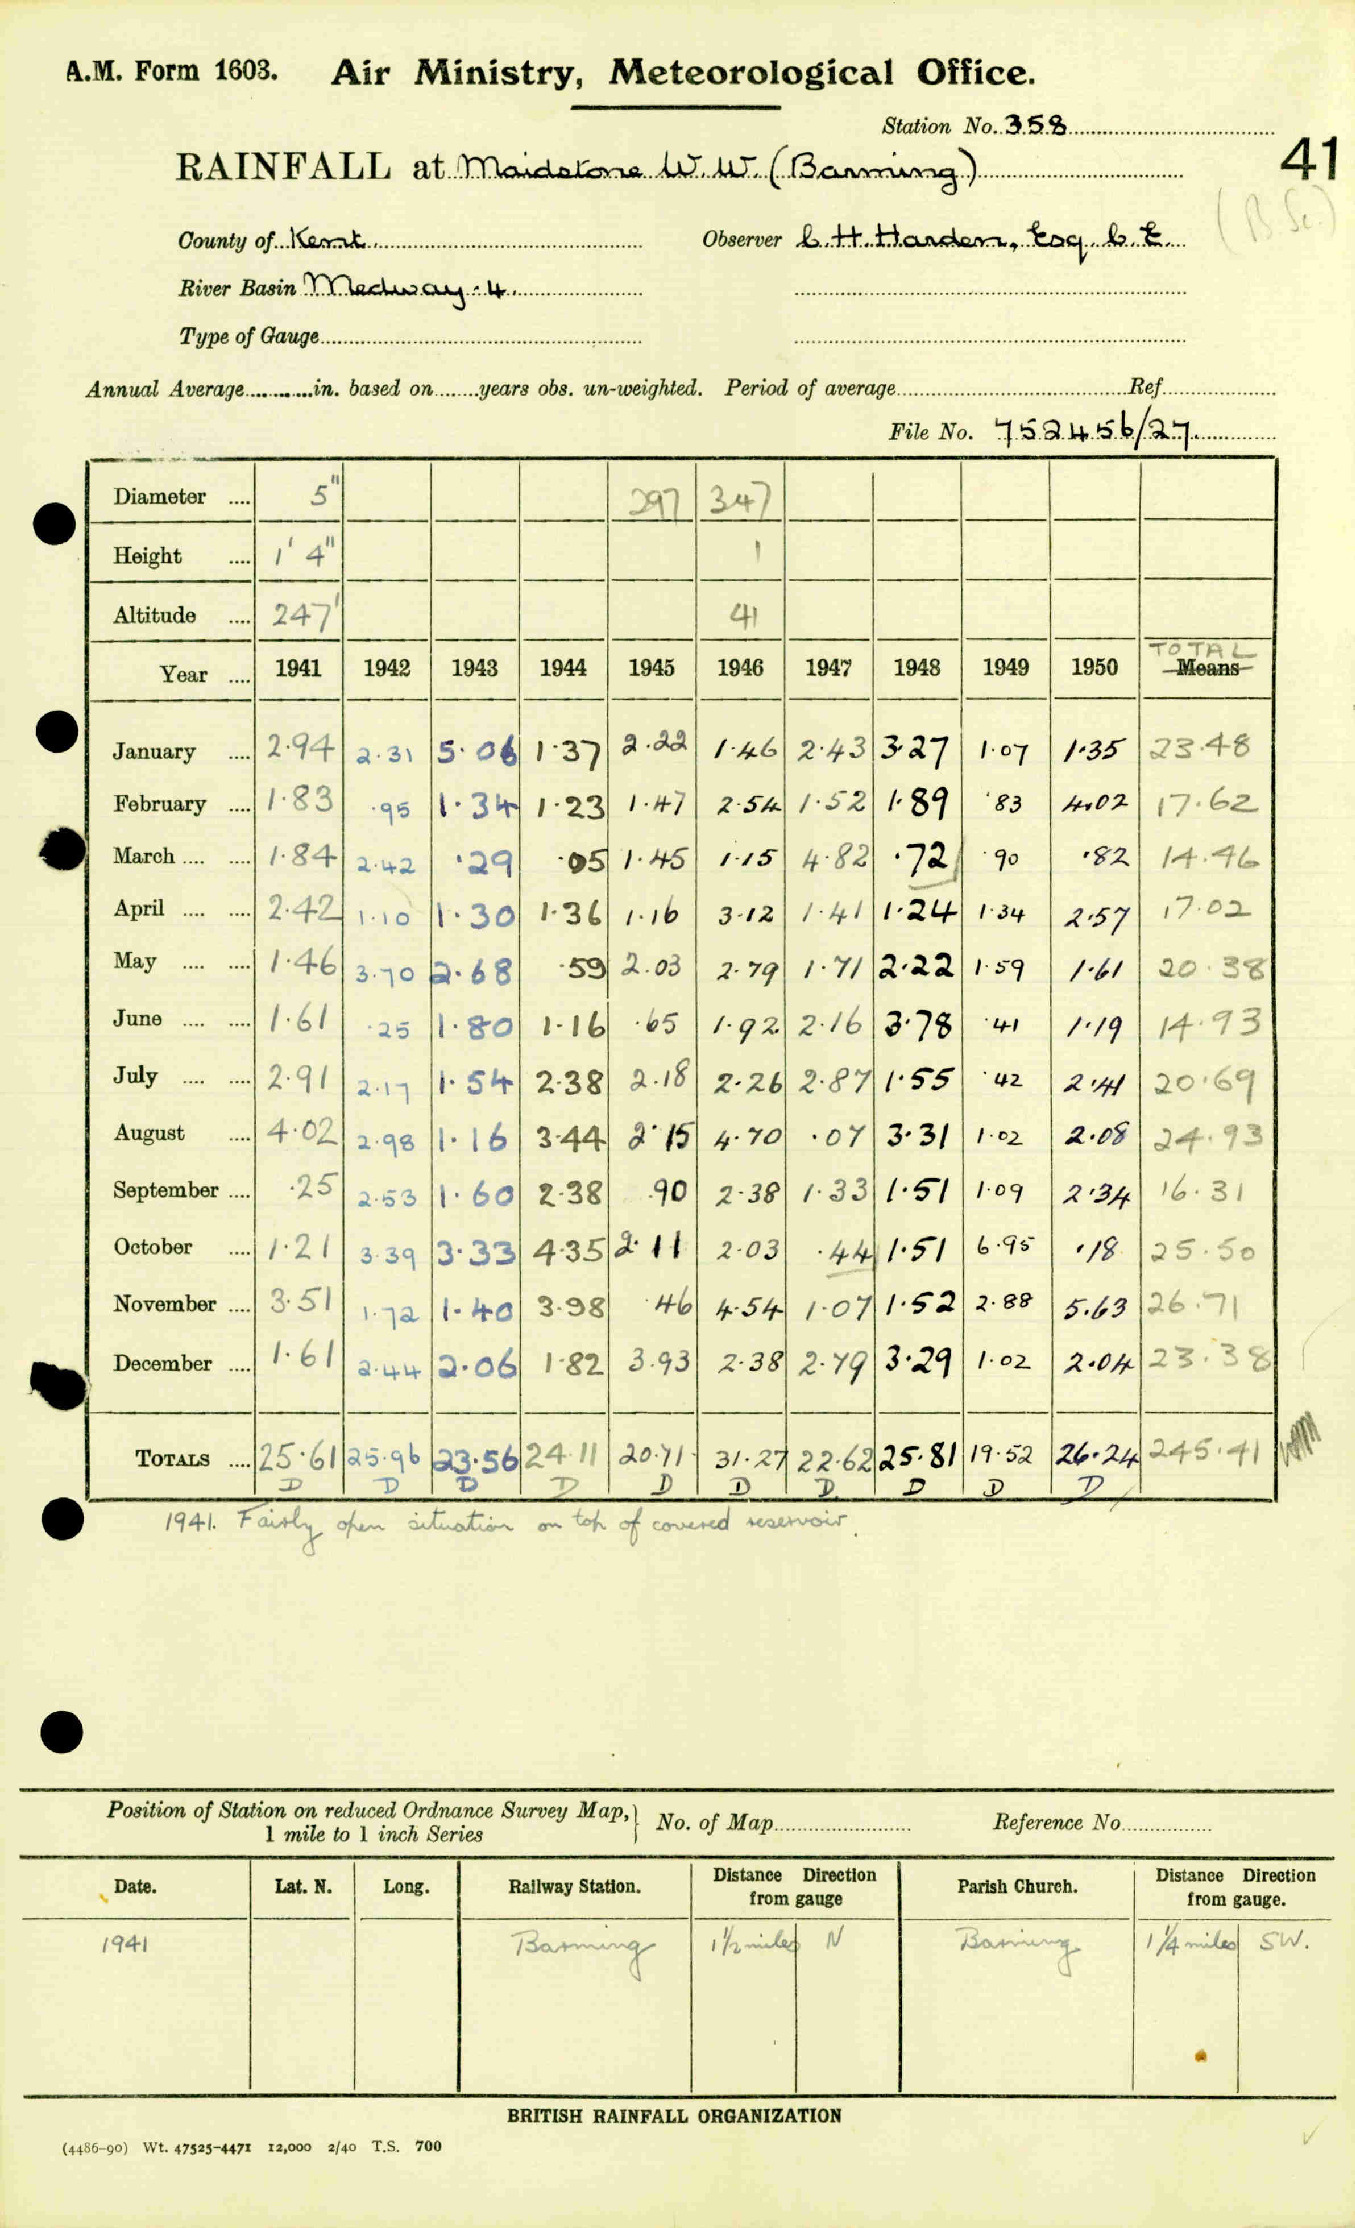 A.M. Form 1603. Air Ministry, Meteorological Office.
Station No. 358
41
RAINFALL at Maidstone W.W. (Barming)
(B Sc.)
County of Kent Observer C. H. Harden, Esq. C. E.
River Basin Medway. 4.
Type of Gauge
Annual Average in. based on years obs. un-weighted. Period of average Ref
File No. 752456/27
Diameter .... 5" 297 347
Height .... 1' 4" 1
Altitude .... 247' 41
TOTAL
Year .... 1941 1942 1943 1944 1945 1946 1947 1948 1949 1950 Means
January .... 2.94 2.31 5.06 1.37 2.22 1.46 2.43 3.27 1.07 1.35 23.48
February .... 1.83 .95 1.34 1.23 1.47 2.54 1.52 1.89 .83 4.02 17.62
March .... .... 1.84 2.42 .29 .05 1.45 1.15 4.82 .72 .90 .82 14.46
April .... .... 2.42 1.10 1.30 1.36 1.16 3.12 1.41 1.24 1.34 2.57 17.02
May .... .... 1.46 3.70 2.68 .59 2.03 2.79 1.71 2.22 1.59 1.61 20.38
June .... .... 1.61 .25 1.80 1.16 .65 1.92 2.16 3.78 .41 1.19 14.93
July .... .... 2.91 2.17 1.54 2.38 2.18 2.26 2.87 1.55 .42 2.41 20.69
August .... 4.02 2.98 1.16 3.44 2.15 4.70 .07 3.31 1.02 2.08 24.93
September .... .25 2.53 1.60 2.38 .90 2.38 1.33 1.51 1.09 2.34 16.31
October .... 1.21 3.39 3.33 4.35 2.11 2.03 .44 1.51 6.95 .18 25.50
November .... 3.51 1.72 1.40 3.98 .46 4.54 1.07 1.52 2.88 5.63 26.71
December .... 1.61 2.44 2.06 1.82 3.93 2.38 2.79 3.29 1.02 2.04 23.38
TOTALS .... 25.61 25.96 23.56 24.11 20.71 31.27 22.62 25.81 19.52 26.24 245.41
D D D D D D D D D D
1941. Fairly open situation on top of covered reservoir.
Position of Station on reduced Ordnance Survey Map,
1 mile to 1 inch Series
No. of Map Reference No.
Date. Lat. N. Long. Railway Station. Distance Direction from gauge Parish Church. Distance Direction from gauge.
1941 Barming 1½ miles N Barming 1¼ miles SW.
BRITISH RAINFALL ORGANIZATION
(4486-90) Wt. 47525-4471 12,000 2/40 T.S. 700